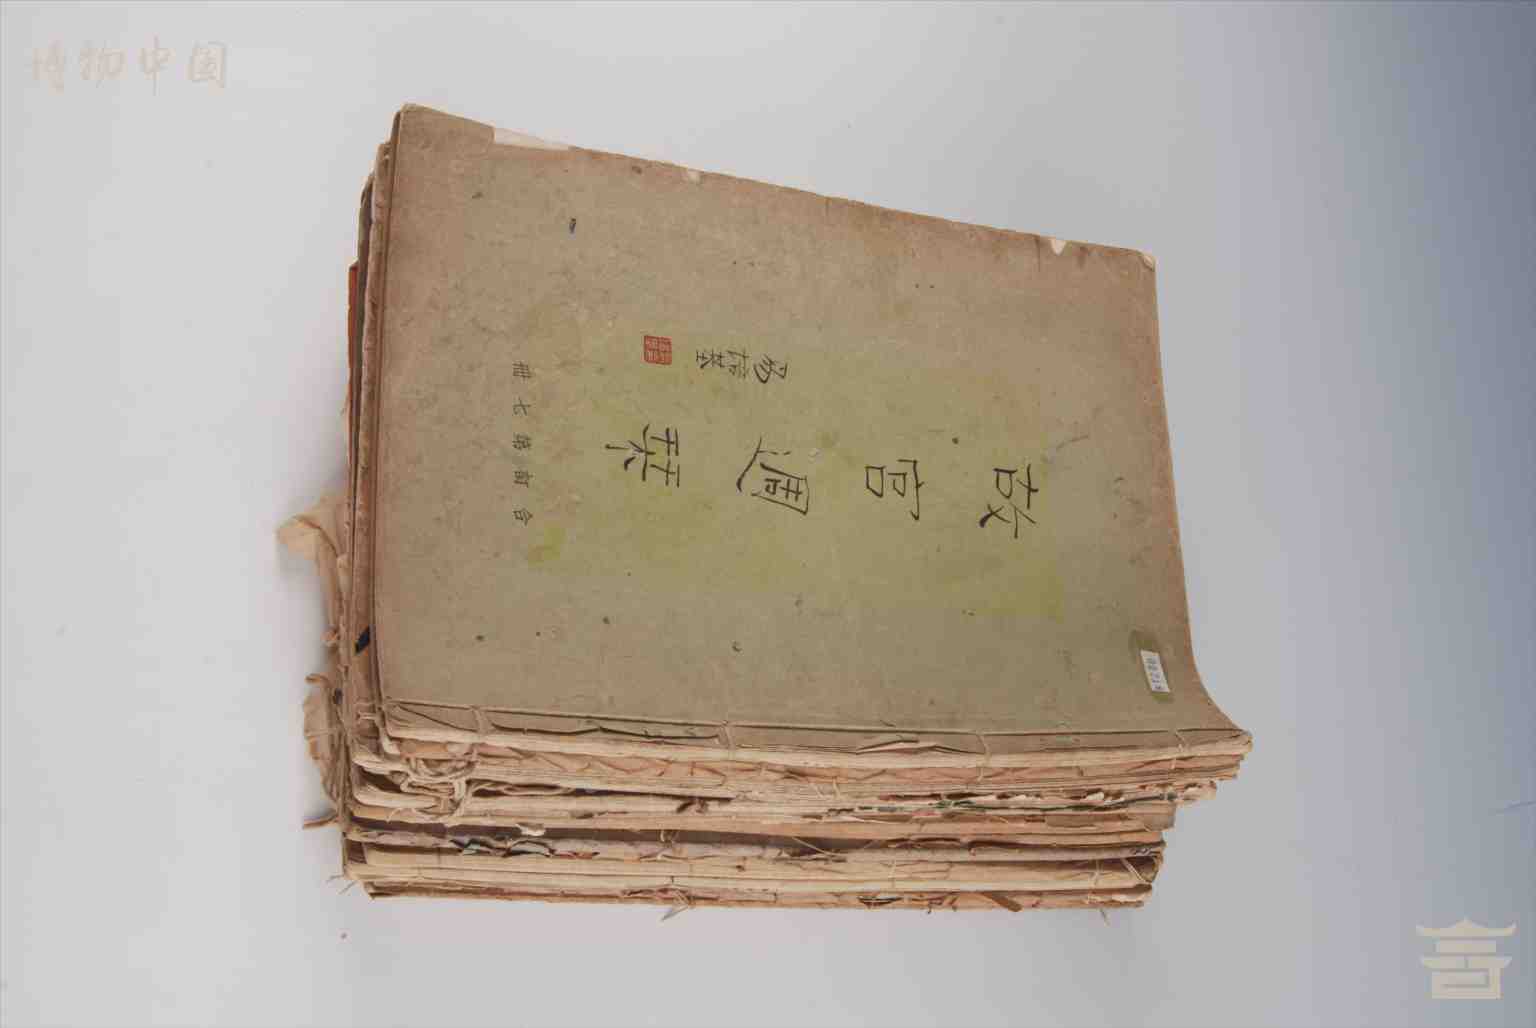 博物中国
故宮週栞
易培基
合訂第七冊